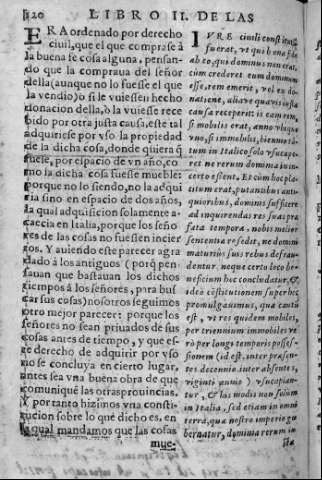 120 LIBRO II. DE LAS
ERA ordenado por derecho
ciuil, que el que comprase à
la buena fe cosa alguna, pensan-
do que la compraua del señor
della (aunque no lo fuesse el que
la vendio) ò si le vuiessen hecho
donacion della, ò la vuiesse rece
bido por otra justa causa, este tal
adquiriese por vso la propiedad
de la dicha cosa, donde quiera q̃
fuese, por espacio de vn año, co
mo la dicha cosa fuesse mueble:
porque no lo siendo, no la adqui
ria sino en espacio de dos años,
la qual adquisicion solamente a-
caecia en Italia, porque los seño
res de las cosas no fuessen incier
tos. Y auiendo este parecer agra
dado à los antiguos (porq̃ pen-
sauan que bastauan los dichos
tiempos à los señores, para bus
car sus cosas) nosotros seguimos
otro mejor parecer: porque los
señores no sean priuados de sus
cosas antes de tiempo, y que es-
te derecho de adquirir por vso
no se concluya en cierto lugar,
antes sea vna buena obra de que
comunique à las otras prouincias.
Y por tanto hizimos vna consti-
tucion sobre lo que dicho es, en
la qual mandamos que las cosas
mue-
IVRE ciuili constitutũ
fuerat, vt qui bona fide
ab eo, qui dominus non erat,
cùm crederet eum dominum
esse, rem emerit, vel ex do-
natione, aliave quavis iusta
causa receperit: is eam rem,
si mobilis erat, anno vbique
vno, si immobilis, biennio tã-
tum in Italico solo vsucape-
ret ne rerum dominia incer-
ta essent. Et cùm hoc pla-
citum erat, putantibus anti-
quioribus, dominis sufficere
ad inquirendas res suas præ
fata tempora, nobis melior
sententia resedit, ne domini
maturius suis rebus defrau-
dentur neque certo loco be-
neficium hoc concludatur, &
ideo cõstitutionem super hoc
promulgauimus, qua cautũ
est, vt res quidem mobiles,
per triennium immobiles ve-
rò per longi temporis posses-
sionem (id est, inter præsen-
tes decennio inter absentes,
viginti annis) vsucapian-
tur, & his modis non solùm
in Italia, sed etiam in omni
terra, quæ nostro imperio gu-
bernatur, dominia rerum iu-
sta